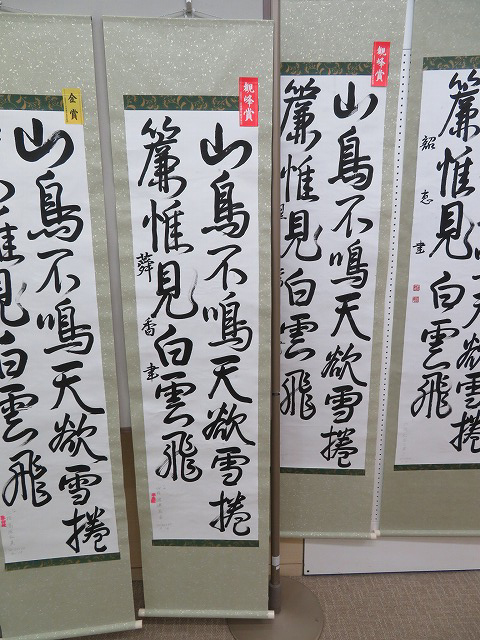 金賞
山鳥不鳴天欲雪捲
惟見白雲飛
親峰賞
山鳥不鳴天欲雪捲
簾惟見白雲飛
舜香書
親峰賞
山鳥不鳴天欲雪捲
簾惟見白雲飛
天欲雪捲
簾惟見白雲飛
韶志書